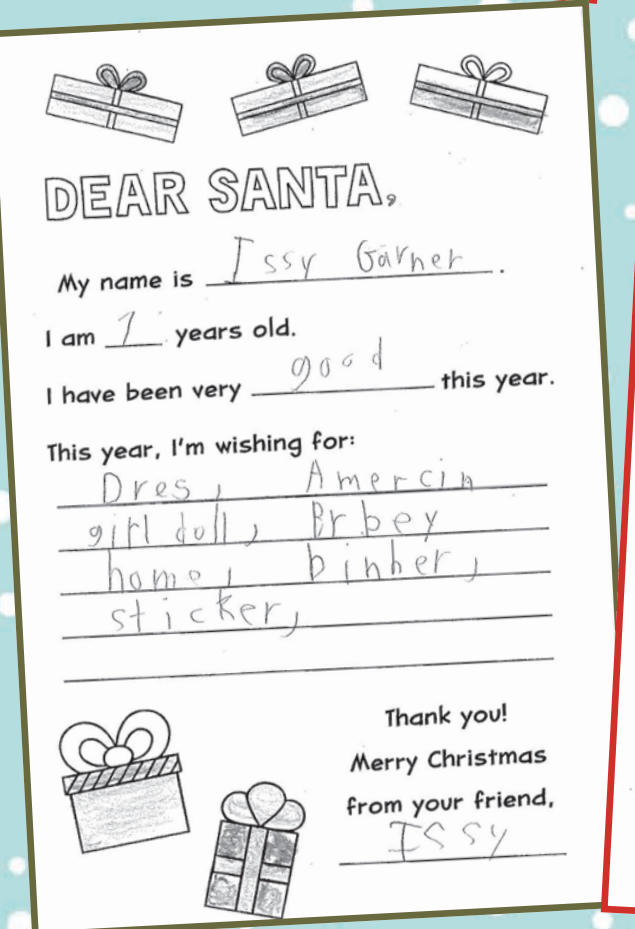 DEAR SANTA,
My name is Issy Garner.
I am 7 years old.
I have been very good this year.
This year, I'm wishing for:
Dres, Amercin
girl doll, Brbey
home, binher,
sticker,
Thank you!
Merry Christmas
from your friend,
Issy